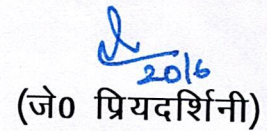 2016
(जे0 प्रियदर्शिनी)